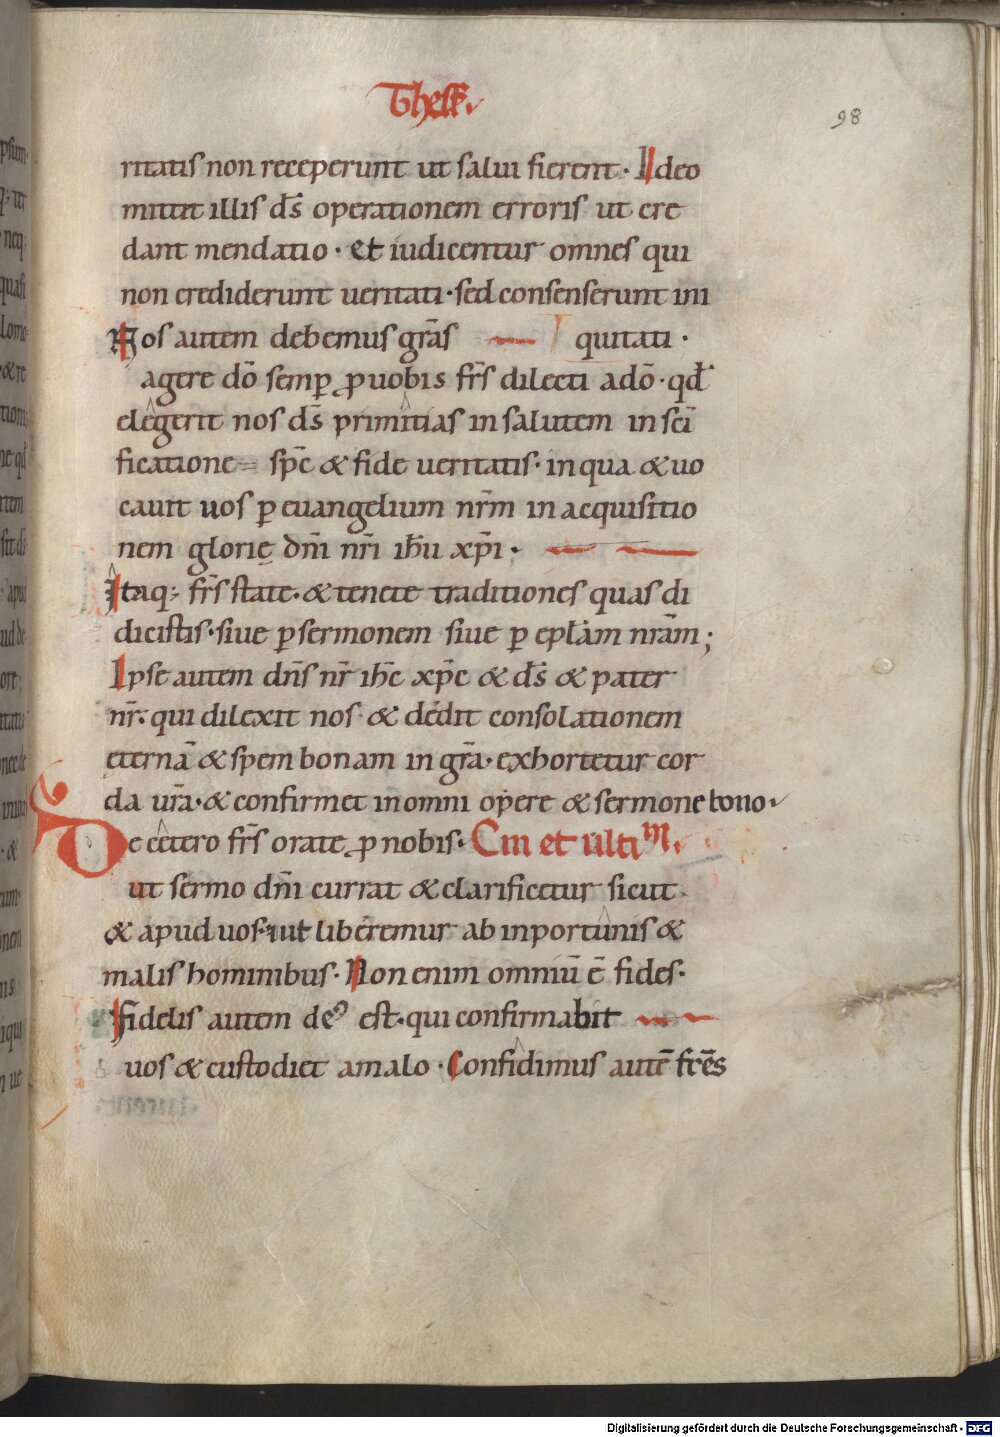 Thess.
98
ritatis non receperunt ut salui fierent · Ideo
mittit illis ds̄ operationem erroris ut cre
dant mendatio · et iudicentur omnes qui
non crediderunt ueritati · sed consenserunt ini
Nos autem debemus grā̄s quitati ·
agere dō semꝑ ꝓ uobis fr̄s dilecti a dō · qd̄
elegerit nos ds̄ primitias in salutem in sc̄i
ficatione sp̄c & fide ueritatis · in qua & uo
cauit uos ꝑ euangelium nr̄m in acquisitio
nem glorię dn̄i nr̄i ih̄u xp̄i ·
Itaq; fr̄s state · & tenete traditiones quas di
dicistis · siue ꝑ sermonem siue ꝑ epl̄am nrām ;
Ipse autem dn̄s nr̄ ih̄c xp̄c & ds̄ & pater
nr̄ · qui dilexit nos & dedit consolationem
eternā & spem bonam in gr̄a · exhortetur cor
da ur̄a · & confirmet in omni opere & sermone bono ·
De cetero fr̄s orate ꝓ nobis · Cm et ulti m̄ .
ut sermo dn̄i currat & clarificetur sicut
& apud uos · & ut liberemur ab inportunis &
malis hominibus · Non enim omniū ē fides ·
Fidelis autem deꝰ est · qui confirmabit
uos & custodiet a malo · Confidimus autē frēs
Digitalisierung gefördert durch die Deutsche Forschungsgemeinschaft - DFG